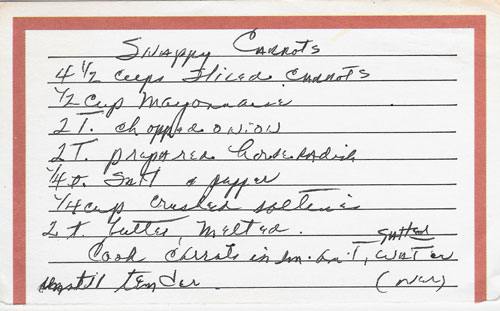 Snappy Carrots
4 1/2 cups sliced carrots
1/2 cup mayonnaise
2 T. chopped onion
2 T. prepared horseradish
1/4 t. salt & pepper
1/4 cup crushed saltines
2 t butter, melted.
Cook carrots in sm. am't, salted water
until tender. (over)